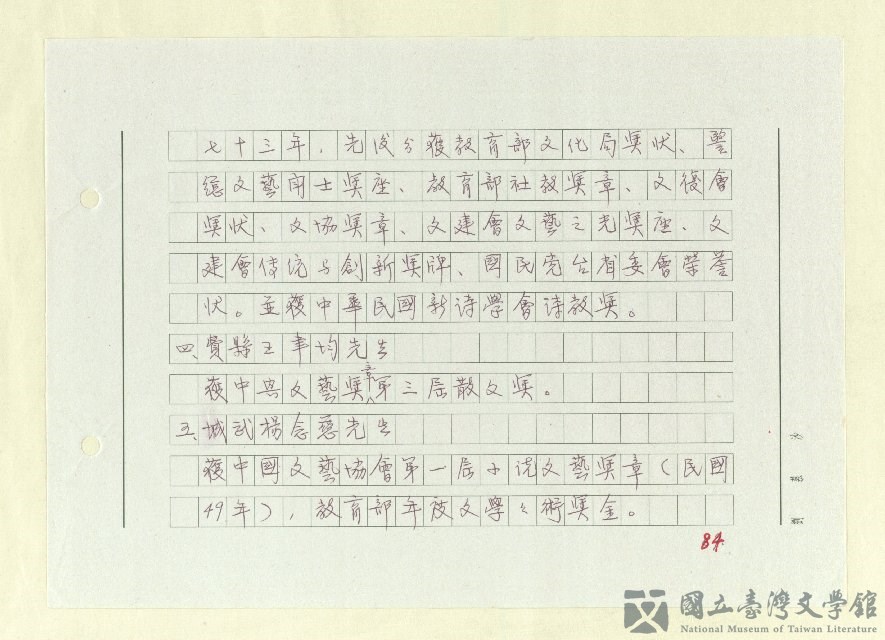 七十三年，先後分獲教育部文化局獎狀、
德文藝鬥士獎座、教育部社教獎章、文復會
獎狀、文協獎章、文建會文藝之光獎座、文
建會传统与创新獎牌、國民党台省委會榮誉
状。並獲中華民國新诗學會诗教獎。
四、費縣王書均先生
獲中興文藝獎章第三屆散文獎。
五、城武楊念慈先生
獲中國文藝協會第一屆小说文藝獎章（民國
49年），教育部年度文學々術獎金。
84
國立臺灣文學館
National Museum of Taiwan Literature